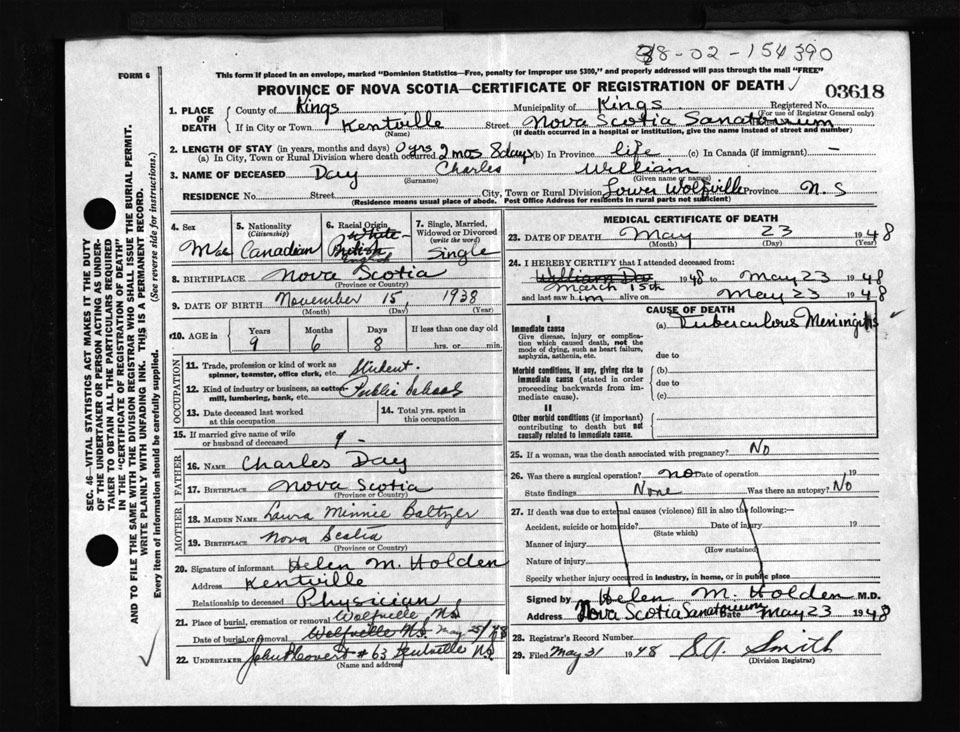 38-02-154390
FORM 6
This form if placed in an envelope, marked "Dominion Statistics—Free, penalty for improper use $300," and properly addressed will pass through the mail "FREE"
PROVINCE OF NOVA SCOTIA—CERTIFICATE OF REGISTRATION OF DEATH
03618
1. PLACE OF DEATH
County of Kings Municipality of Kings Registered No.
(For use of Registrar General only)
If in City or Town Kentville Street Nova Scotia Sanatorium
(Name) (If death occurred in a hospital or institution, give the name instead of street and number)
2. LENGTH OF STAY (in years, months and days) 0 yrs.
(a) In City, Town or Rural Division where death occurred 2 mos 8 days (b) In Province life (c) In Canada (if immigrant) —
3. NAME OF DECEASED Day Charles William
(Surname) (Given name or names)
RESIDENCE No. Street City, Town or Rural Division Lower Wolfville Province N. S
(Residence means usual place of abode. Post Office Address for residents in rural parts not sufficient)
4. Sex
5. Nationality (Citizenship)
6. Racial Origin
7. Single, Married, Widowed or Divorced (write the word)
Canadian White British Single
8. BIRTHPLACE Nova Scotia
(Province or Country)
9. DATE OF BIRTH November 15, 1938
(Month) (Day) (Year)
10. AGE in
Years Months Days If less than one day old
9 6 8 hrs. or min.
OCCUPATION
11. Trade, profession or kind of work as spinner, teamster, office clerk, etc. Student.
12. Kind of industry or business, as cotton mill, lumbering, bank, etc. Public School
13. Date deceased last worked at this occupation
14. Total yrs. spent in this occupation
15. If married give name of wife or husband of deceased
FATHER
16. NAME Charles Day
17. BIRTHPLACE Nova Scotia
(Province or Country)
MOTHER
18. MAIDEN NAME Laura Minnie Baltzer
19. BIRTHPLACE Nova Scotia
(Province or Country)
20. Signature of informant Helen M. Holden
Address Kentville
Relationship to deceased Physician
21. Place of burial, cremation or removal Wolfville N.S.
Date of burial or removal Wolfville N.S. May 25/48
22. UNDERTAKER # 63 Kentville N.S.
(Name and address)
MEDICAL CERTIFICATE OF DEATH
23. DATE OF DEATH May 23 1948
(Month) (Day) (Year)
24. I HEREBY CERTIFY that I attended deceased from:
William Day March 15th 1948 to May 23 1948
and last saw him alive on May 23 1948
CAUSE OF DEATH
I
Immediate cause
(a) Tuberculous Meningitis
Give disease, injury or complication which caused death, not the mode of dying, such as heart failure, asphyxia, asthenia, etc.
due to
Morbid conditions, if any, giving rise to immediate cause (stated in order proceeding backwards from immediate cause).
(b)
due to
(c)
II
Other morbid conditions (if important) contributing to death but not causally related to immediate cause.
25. If a woman, was the death associated with pregnancy? No
26. Was there a surgical operation? no Date of operation 19
State findings None Was there an autopsy? No
27. If death was due to external causes (violence) fill in also the following:—
Accident, suicide or homicide? Date of injury 19
(State which)
Manner of injury
(How sustained)
Nature of injury
Specify whether injury occurred in industry, in home, or in public place
Signed by Helen M. Holden M.D.
Address Nova Scotia Sanatorium Date May 23 1948
28. Registrar's Record Number
29. Filed May 31 1948 S.A. Smith
(Division Registrar)
SEC. 46—VITAL STATISTICS ACT MAKES IT THE DUTY
OF THE UNDERTAKER OR PERSON ACTING AS UNDERTAKER TO OBTAIN ALL THE PARTICULARS REQUIRED
IN THE "CERTIFICATE OF REGISTRATION OF DEATH"
AND TO FILE THE SAME WITH THE DIVISION REGISTRAR WHO SHALL ISSUE THE BURIAL PERMIT.
WRITE PLAINLY WITH UNFADING INK. THIS IS A PERMANENT RECORD.
Every item of information should be carefully supplied. (See reverse side for instructions.)